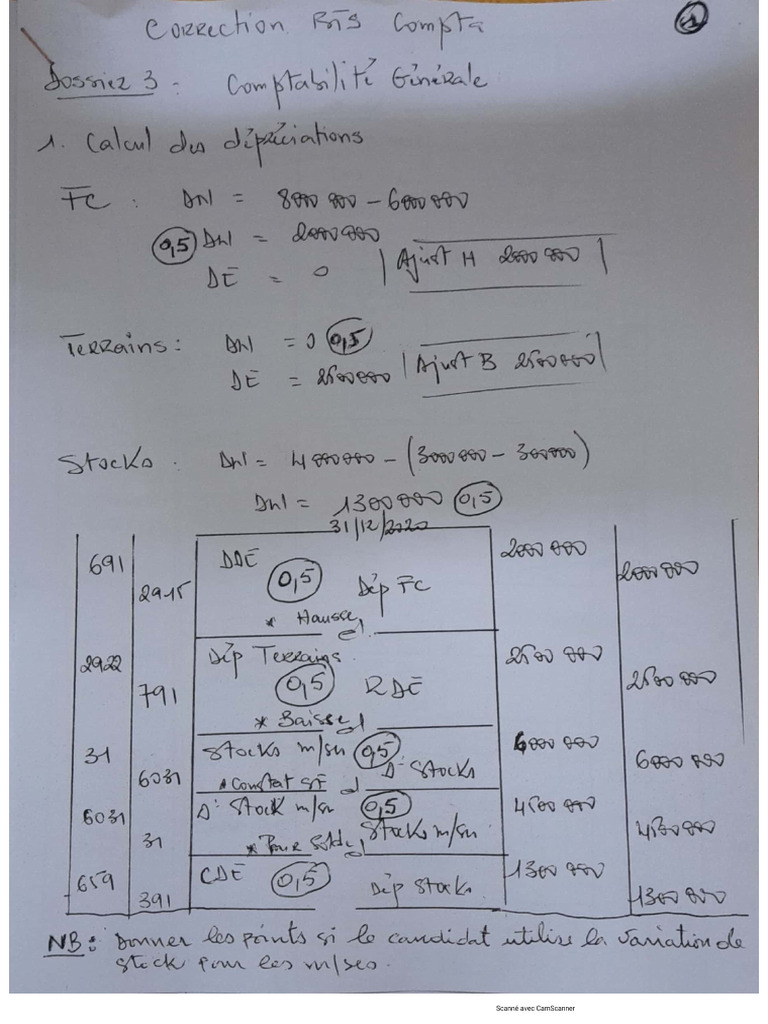 Correction BTS Compta
1
Dossier 3 : Comptabilité Générale
1. Calcul des dépréciations
FC : DNI = 8000 000 - 6000000
0,5 DNI = 2000 000
DE = 0 | Ajust H 2000 000 |
Terrains : DNI = 0 0,5
DE = 2500000 | Ajust B 2500000 |
Stocks : DNI = 4000000 - (3000000 - 300000)
DNI = 1300 000 0,5
31/12/2020
691 DDE 2000 000
0,5
2915 Dép FC 2000 000
* Hausse
2922 Dép Terrains 2500 000
0,5
791 RDE 2500 000
* Baisse
31 Stocks m/se 0,5 6000 000
6031 Δ° Stocks 6000 000
* Constat SF
6031 Δ° Stock m/se 0,5 4500 000
31 Stocks m/se 4500 000
* Pour Solde
659 CDE 0,5 1300 000
391 Dép Stocks 1300 000
NB : Donner les points si le candidat utilise la variation de
stock pour les m/ses.
Scanné avec CamScanner